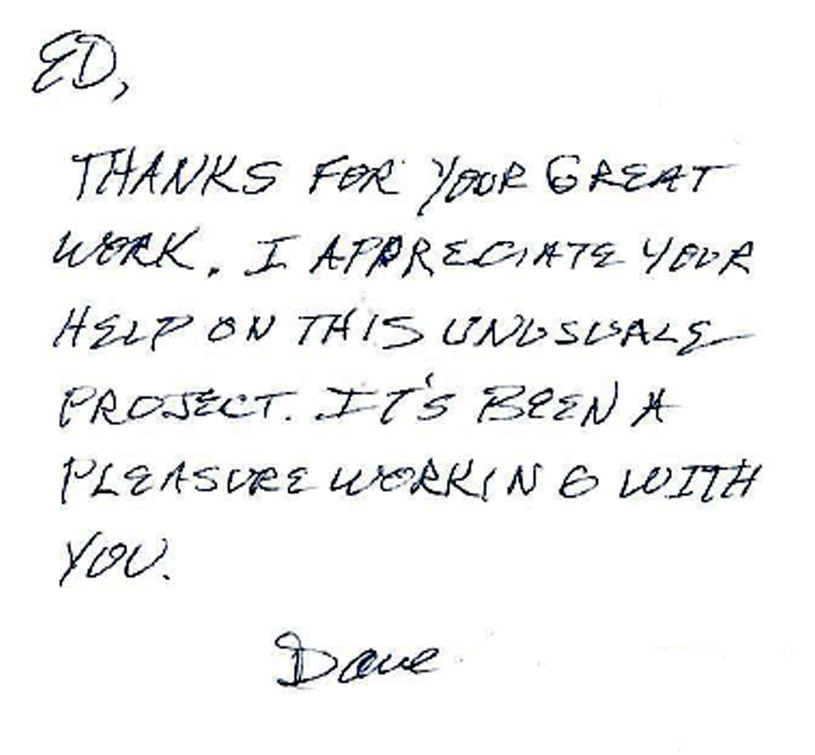 ED,
THANKS FOR YOUR GREAT
WORK. I APPRECIATE YOUR
HELP ON THIS UNUSUALE
PROJECT. IT'S BEEN A
PLEASURE WORKING WITH
YOU.
Dave